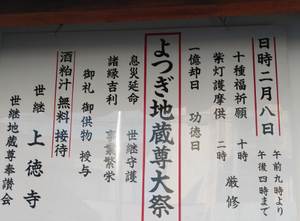 日時 二月八日
午前九時より
午後四時まで
十種福祈願 十時
柴灯護摩供 二時
厳修
一億劫日 功徳日
よつぎ地蔵尊大祭
息災延命 世継守護
諸縁吉利 事業繁栄
御札 御供物 授与
酒粕汁 無料 接待
世継 上徳寺
世継地蔵尊奉讃会